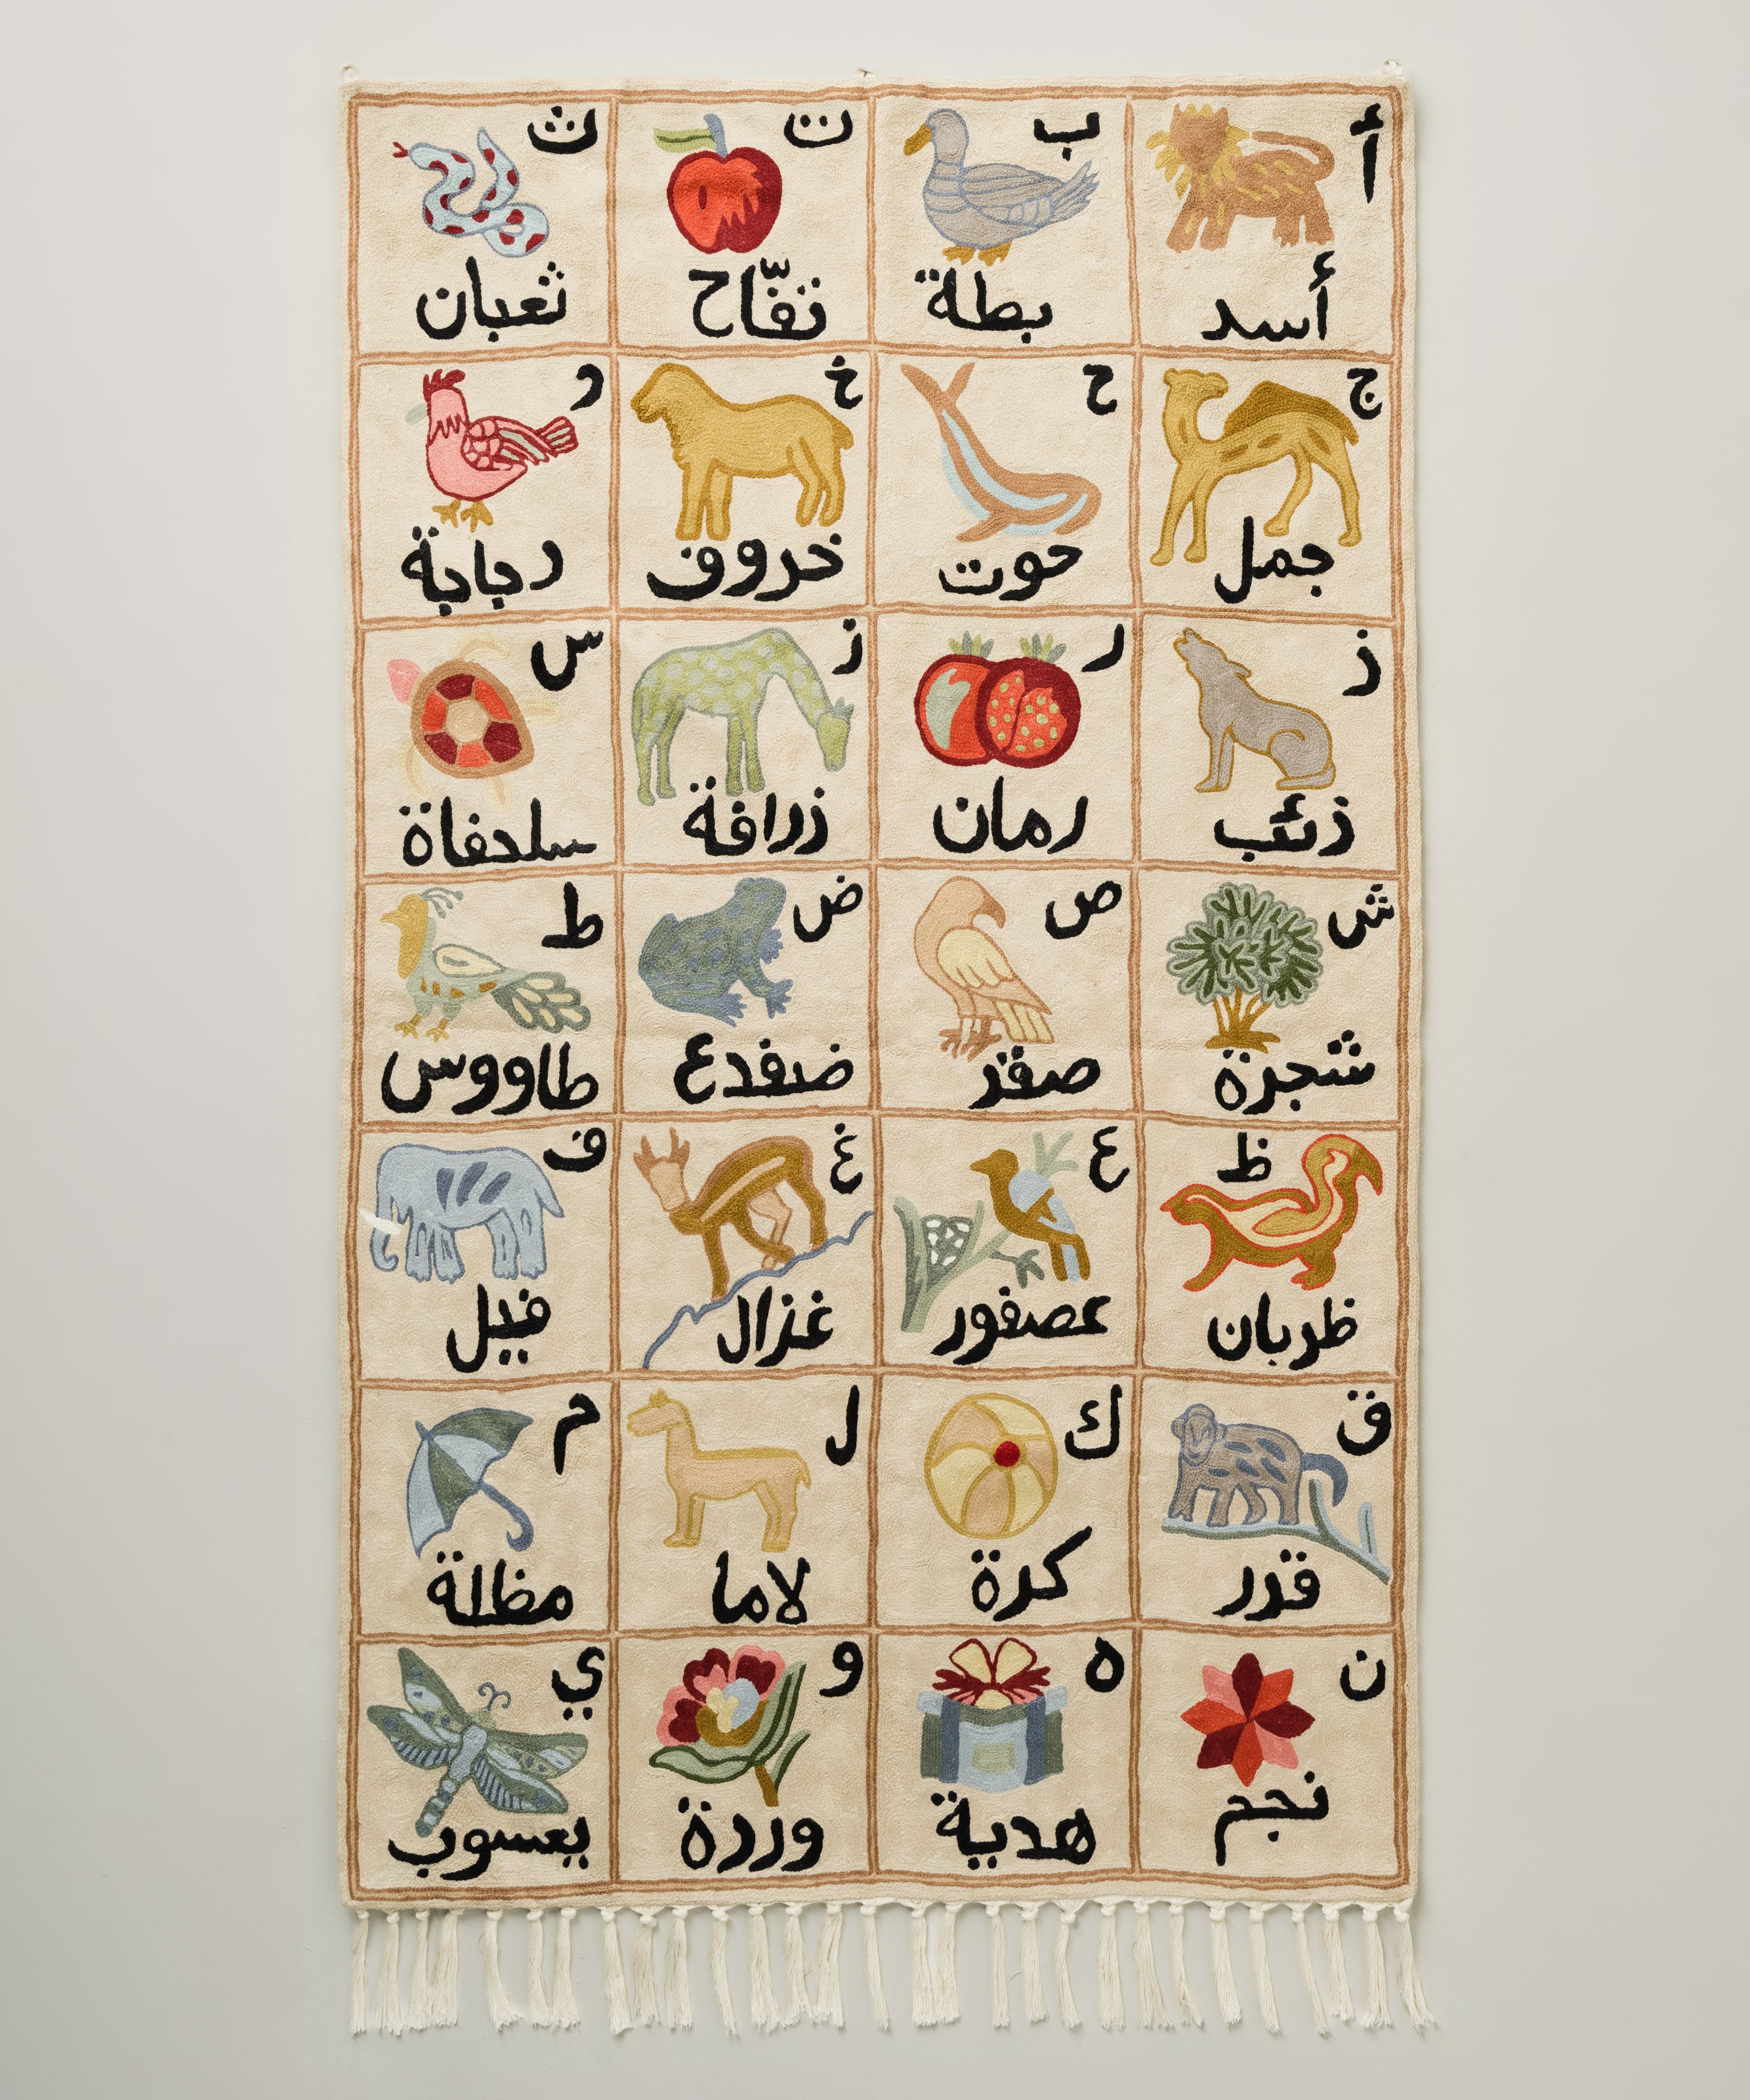 أ
أسد
ب
بطة
ت
تفّاح
ث
ثعبان
ج
جمل
ح
حوت
خ
خروف
د
دجاجة
ذ
ذئب
ر
رمان
ز
زرافة
س
سلحفاة
ش
شجرة
ص
صقر
ض
ضفدع
ط
طاووس
ظ
ظربان
ع
عصفور
غ
غزال
ف
فيل
ق
قرد
ك
كرة
ل
لاما
م
مظلة
ن
نجم
ه
هدية
و
وردة
ي
يعسوب